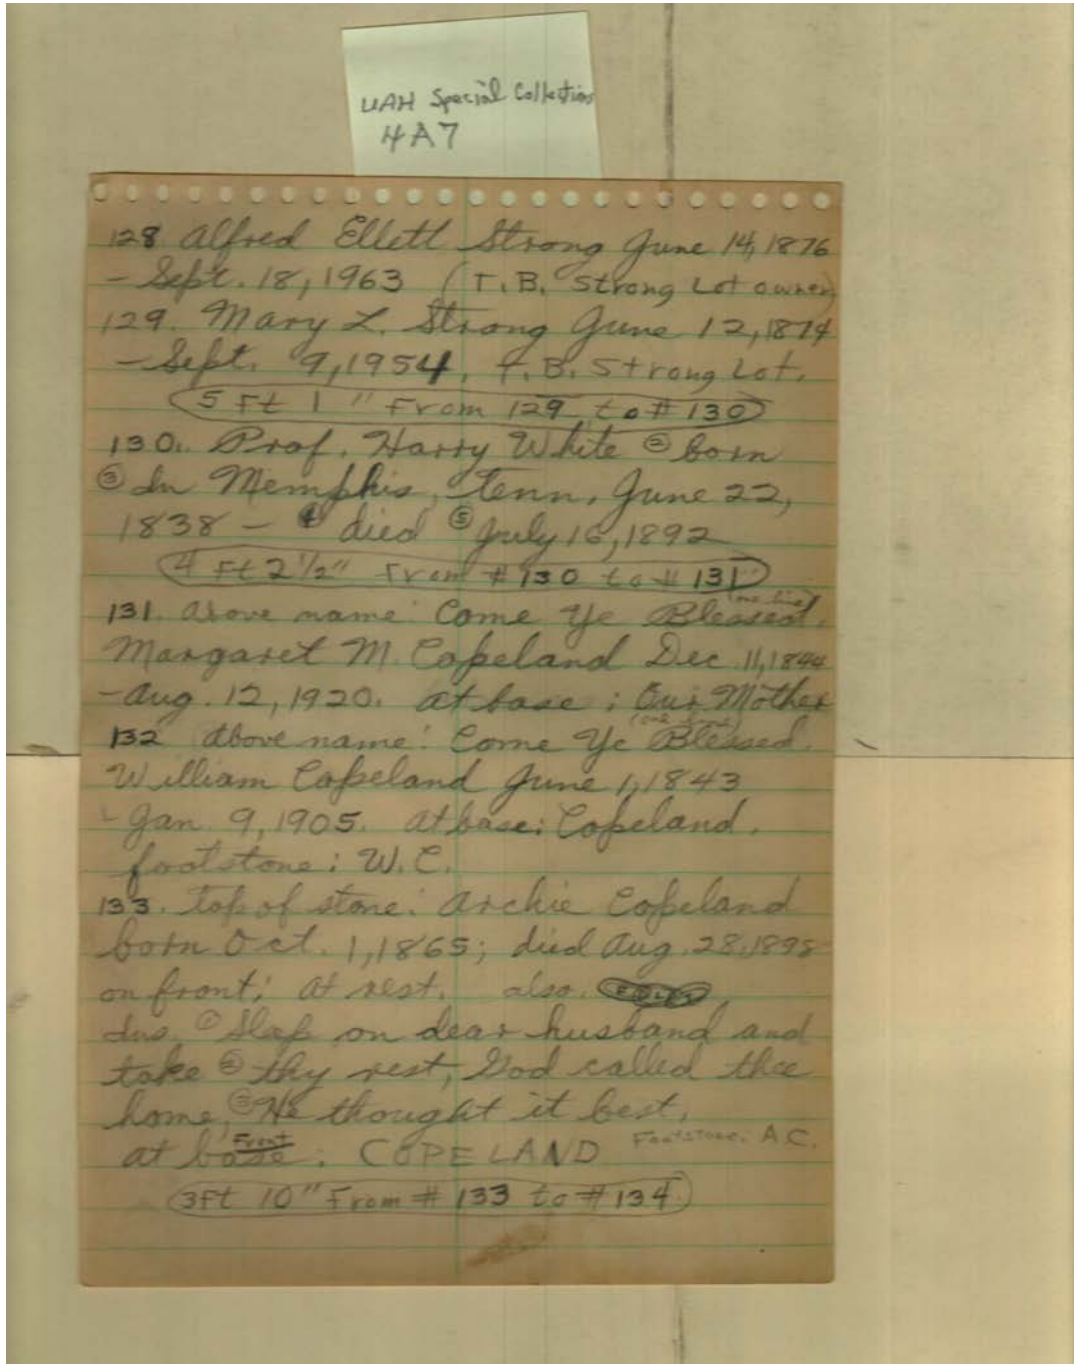 UAH Special Collections
4A7
128. Alfred Ellett Strong June 14, 1876
- Sept. 18, 1963 (T. B. Strong Lot owner)
129. Mary L. Strong June 12, 1874
- Sept. 9, 1954, T. B. Strong Lot.
5 Ft 1" From 129 to # 130
130. Prof. Harry White ② born
③ In Memphis, Tenn, June 22,
1838 - ④ died ⑤ July 16, 1892
4 Ft 2 1/2" From # 130 to # 131
(one line)
131. above name: Come Ye Blessed.
Margaret M. Copeland Dec. 11, 1844
- Aug. 12, 1920. at base: Our Mother
132 Above name: Come Ye Blessed.
William Copeland June 1, 1843
- Jan. 9, 1905. at base: Copeland.
footstone: W. C.
133. top of stone: Archie Copeland
born Oct. 1, 1865; died Aug. 28, 1898
on front: At rest. also.
Ins. ① Sleep on dear husband and
take ② thy rest, God called thee
home, ③ He thought it best.
at base: Front COPELAND Footstone: A.C.
3 Ft 10" From # 133 to # 134